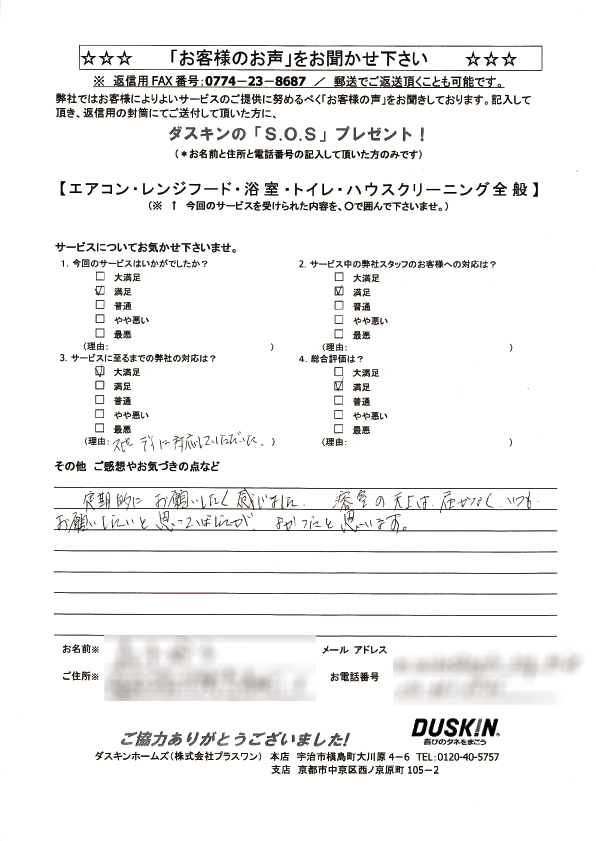 ☆☆☆ 「お客様のお声」をお聞かせ下さい ☆☆☆
※ 返信用FAX番号:0774-23-8687 ／ 郵送でご返送頂くことも可能です。
弊社ではお客様によりよいサービスのご提供に努めるべく「お客様の声」をお聞きしております。記入して
頂き、返信用の封筒にてご送付して頂いた方に、
ダスキンの「S.O.S」プレゼント！
（＊お名前と住所と電話番号の記入して頂いた方のみです）
【エアコン・レンジフード・浴室・トイレ・ハウスクリーニング全般】
（※ ↑ 今回のサービスを受けられた内容を、〇で囲んで下さいませ。）
サービスについてお気かせ下さいませ。
1. 今回のサービスはいかがでしたか？
□ 大満足
☑ 満足
□ 普通
□ やや悪い
□ 最悪
（理由: ）
2. サービス中の弊社スタッフのお客様への対応は？
□ 大満足
☑ 満足
□ 普通
□ やや悪い
□ 最悪
（理由: ）
3. サービスに至るまでの弊社の対応は？
☑ 大満足
□ 満足
□ 普通
□ やや悪い
□ 最悪
（理由: スピーディに対応していただいた。）
4. 総合評価は？
□ 大満足
☑ 満足
□ 普通
□ やや悪い
□ 最悪
（理由: ）
その他 ご感想やお気づきの点など
定期的にお願いしたく感じました。浴室の天上は、届かなく、いつも
お願いしたいと思っていましたが、よかったと思います。
お名前※
メール アドレス
ご住所※
お電話番号
ご協力ありがとうございました!
DUSKIN
喜びのタネをまこう
ダスキンホームズ（株式会社プラスワン） 本店 宇治市槇島町大川原4-6 TEL:0120-40-5757
支店 京都市中京区西ノ京原町105-2